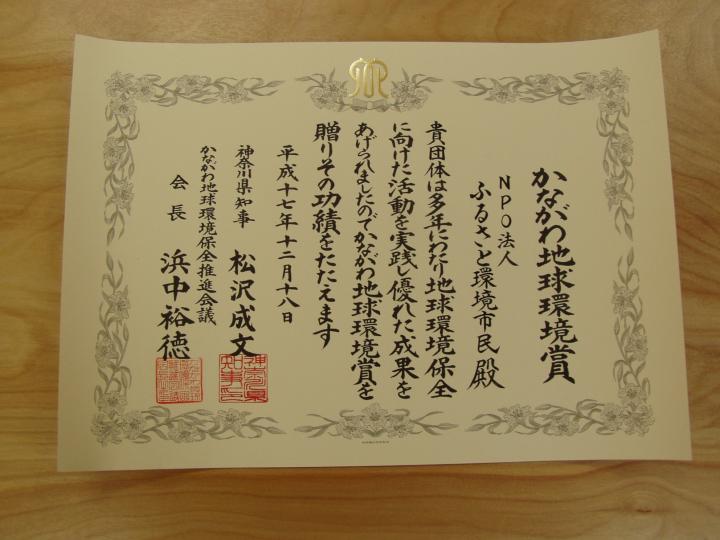 かながわ地球環境賞
NPO法人
ふるさと環境市民殿
貴団体は多年にわたり地球環境保全
に向けた活動を実践し優れた成果を
あげられましたのでかながわ地球環境賞を
贈りその功績をたたえます
平成十七年十二月十八日
神奈川県知事 松沢成文
かながわ地球環境保全推進会議
会長 浜中裕徳